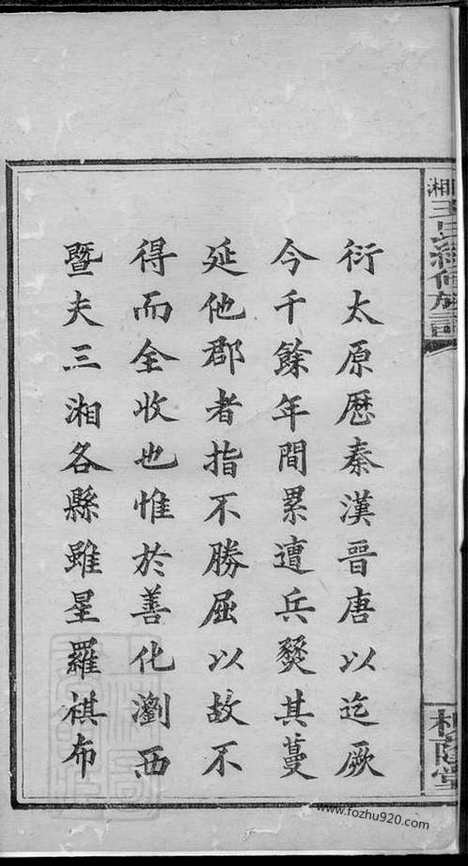 湘王氏續修族譜
衍太原厯秦漢晉唐以迄厥
今千餘年間累遭兵燹其蔓
延他郡者指不勝屈以故不
得而全收也惟於善化瀏西
暨夫三湘各縣雖星羅祺布
www.fozhu920.com